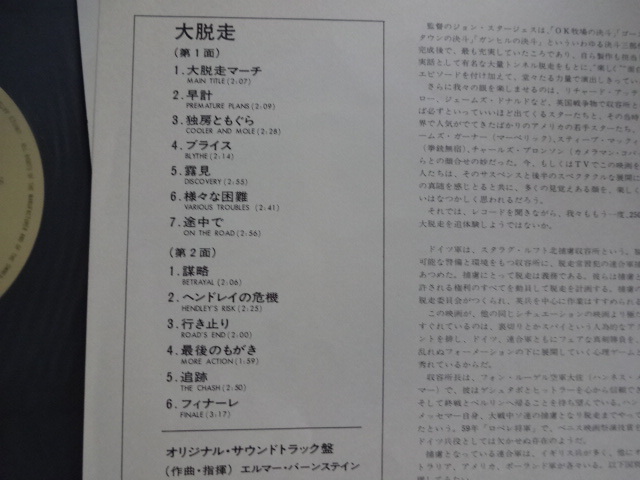 大脱走
(第1面)
1.大脱走マーチ
MAIN TITLE (2:07)
2.早計
PREMATURE PLANS (2:09)
3.独房ともぐら
COOLER AND MOLE (2:28)
4.ブライス
BLYTHE (2:14)
5.露見
DISCOVERY (2:55)
6.様々な困難
VARIOUS TROUBLES (2:41)
7.途中で
ON THE ROAD (2:56)
(第2面)
1.謀略
BETRAYAL (2:06)
2.ヘンドレイの危機
HENDLEY'S RISK (2:23)
3.行き止り
ROAD'S END (2:00)
4.最後のもがき
MORE ACTION (1:59)
5.追跡
THE CHASH (2:50)
6.フィナーレ
FINALE (3:17)
オリジナル・サウンドトラック盤
(作曲・指揮) エルマー・バーンステイン
監督のジョン・スタージェスは、「OK牧場の決斗」「ゴー
タウンの決斗」「ガンヒルの決斗」といういわゆる決斗三部
完成後で、最も充実していたころであり、自ら製作も担当
実話として有名な大量トンネル脱走をもとに、"楽しく"
エピソードを付け加えて、堂々たる力量で演出しきってい
さらに我々の顔を楽しませるのは、リチャード・アッテ
ロー、ジェームズ・ドナルドなど、英国戦争物で収容所と
ば必ずといっていいほど出てくるスターたちと、その当時
界で人気がでてきたばかりのアメリカの若手スターたち、
ームズ・ガーナー(マーベリック)、スティーブ・マック
(拳銃無宿)、チャールズ・ブロンソン(カメラマン・コバ
らとの顔合せの妙だった。今、もしくはTVでこの映画を
人たちは、そのサスペンスと後半のスペクタクルな展開に
の真髄を感じとると共に、多くの見覚えある顔を、楽しく
いはなつかしく思われるだろう。
それでは、レコードを聞きながら、我々ももう一度、250
大脱走を追体験しようではないか。
ドイツ軍は、スタラグ・ルフト北捕虜収容所という、
可能な警備と環境をもつ収容所に、脱走常習犯の連合軍捕
あつめた。捕虜にとって脱走は義務である。彼らは捕虜と
許される権利のすべてを動員して脱走を計画する。捕虜の
脱走委員会がつくられ、英兵を中心に作業はすすめられる
この映画が、他の同じシチュエーションの映画より
すぐれているのは、裏切りとかスパイという人為的なアク
ントを排し、ドイツ、連合軍ともにフェアな真剣勝負を、
乱れぬフォーメーションの下に展開していく心理ゲーム
秀れているからだ。
収容所長は、フォン・ルーゲル空軍大佐(ハンネス・メ
マー)で、彼はゲシュタポとヒットラーを心から信頼でき
そして終戦とベルリンへ帰ることを待ち望んでいる。ハン
メッセマー自身、大戦中ソ連の捕虜となり脱走までやって
たという。59年「ロベレ将軍」で、ベニス映画祭演技賞を
ドイツ兵役としては欠かせぬ存在のようだ。
捕虜となっている連合軍は、イギリス兵が多く、他に
トラリア、アメリカ、ポーランド軍が各々いる。以下国別